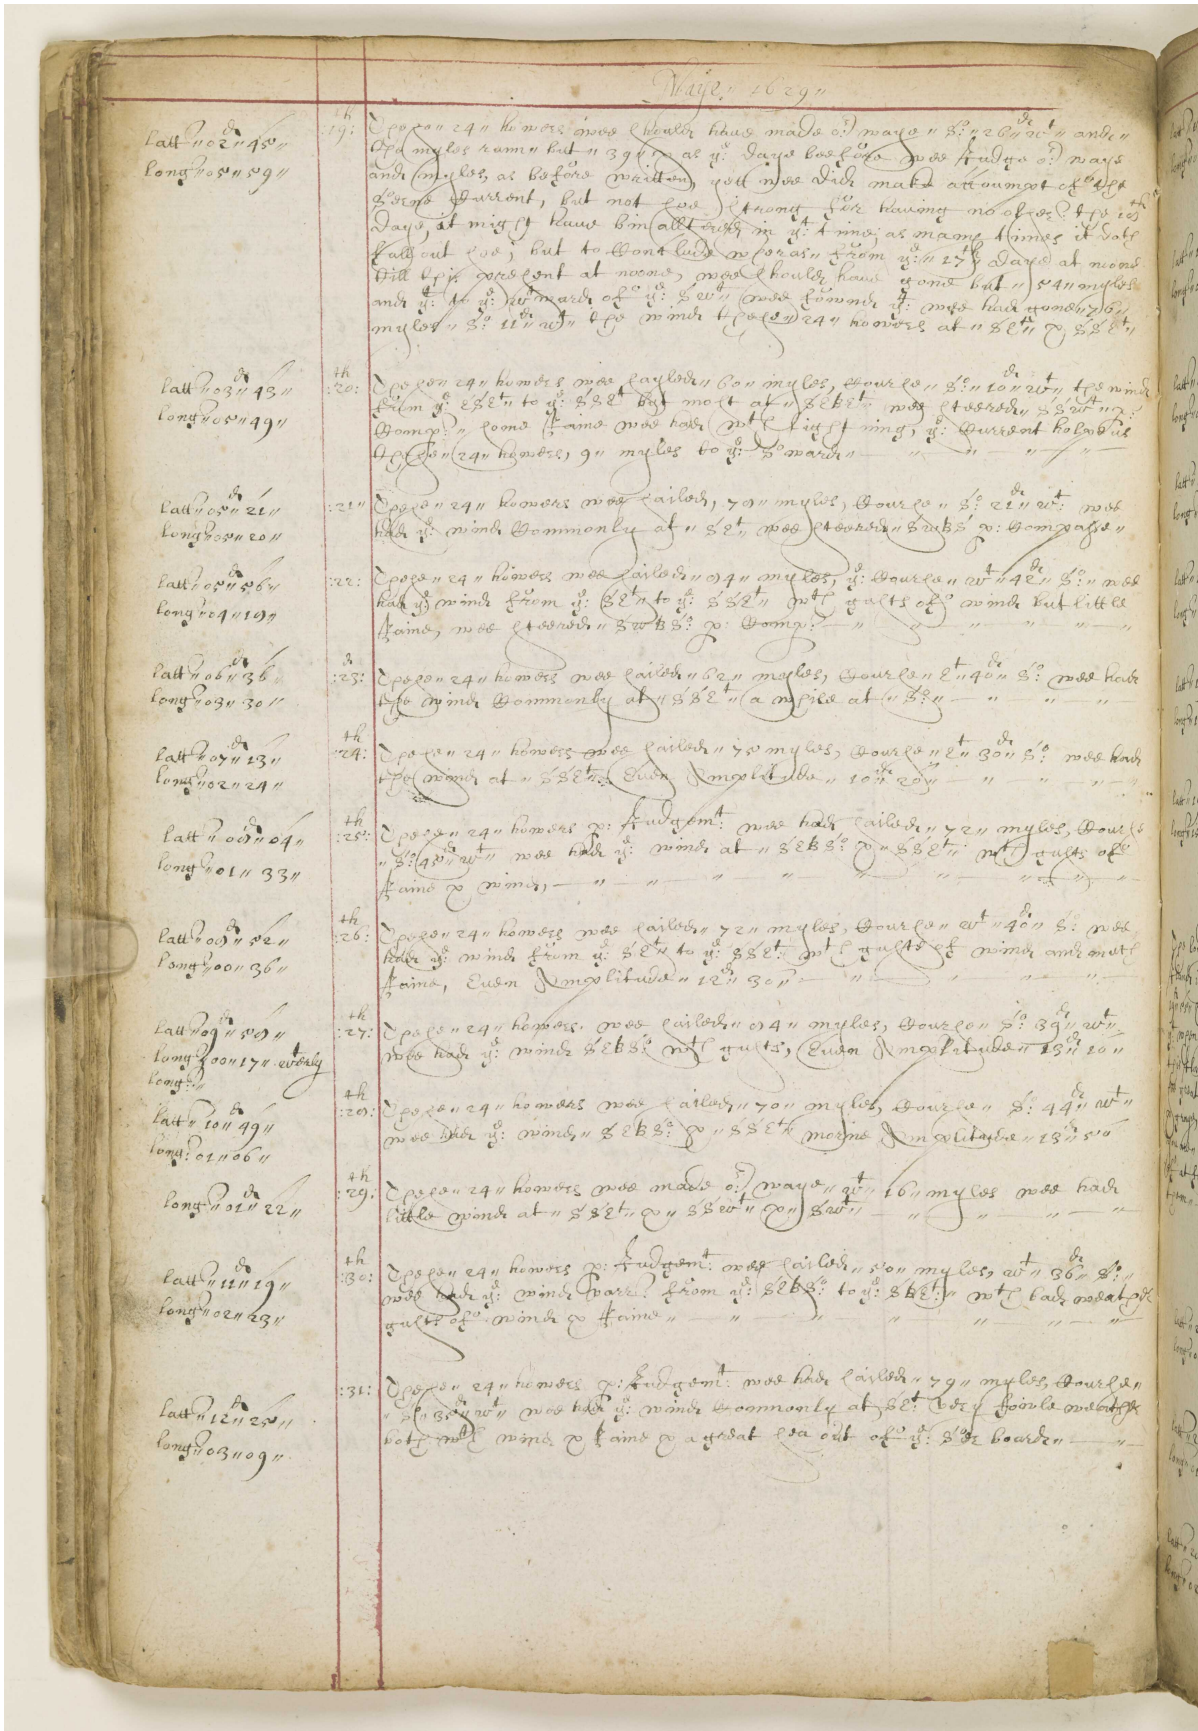 Maye 1629
latt" 02d" 45"
long" 05" 59"
:19th: These" 24" howers wee should have made or waye" So:" 26d" wt" and"
the myles runn" but" 39" as ye: daye beefore wee Judge or waye
and myles, as before written, yett wee did make accoumpt of the
Serne Current, but not soe strong for having no obser: the 18th
daye, it might have bin alltered in ye: time, as many times it doth
fall out soe; but to Conclude wheras" from ye:" 17th daye at noone
till this present at noone, wee should have gone but" 54" myles
and yt: to ye: wtward of ye: Swt" wee fownd yt: wee had gone" 76"
myles" So: 11d" wt" the wind these" 24" howers at" SEt" & SSEt"
latt" 03d" 43"
long" 05" 49"
:20th: These" 24" howers wee sayled" 60" myles, Course" So:" 10d" wt" the wind
from ye: ESEt" to ye: SSEt but most at" SEBEt" wee steered" SSwt" p:
Comp:" some Raine wee had wth lightning, ye: Current holpe us
these" 24" howers, 9" myles to ye: Soward"
latt" 05d" 21"
long" 05" 20"
:21" These" 24" howers wee sailed, 79" myles, Course" So: 21d" wt: wee
had ye: wind Commonly at" SEt" wee steered" SwBS p: Compasse"
latt" 05d" 56"
long" 04" 19"
:22: These" 24" howers wee sailed" 84" myles, ye: Course" wt" 42d" So:" wee
had ye: wind from ye: SEt" to ye: SSEt" wth gusts of wind but little
Raine, wee steered" SwBSo: p: Comp:
latt" 06d" 36
long" 03" 30"
:23d: These" 24" howers wee sailed" 62" myles, Course" Et" 40d" So: wee had
the wind Commonly at" SSEt" a while at" So:"
latt" 07d" 13"
long" 02" 24"
:24th: These" 24" howers wee sailed" 75 myles, Course" Et" 30d" So: wee had
the wind at" SSEt" Even Amplitude" 10d" 20"
latt" 08d" 04"
long" 01" 33"
:25th: These" 24" howers p: Judgemt: wee had sailed" 72" myles, Course
" So: 45d" wt" wee had ye: wind at" SEBSo: &" SSEt" wth gusts of
Raine & wind,
latt" 08d" 52"
long" 00" 36"
:26th: These" 24" howers wee sailed" 72" myles, Course" wt" 40d" So: wee
had ye: wind from ye: SEt" to ye: SSEt: wth gusts of wind and much
Raine, Even Amplitude" 12d" 30"
latt" 09d" 58"
long" 00" 17" wterly
long:"
:27th: These" 24" howers wee sailed" 84" myles, Course" So: 39d" wt"
wee had ye: wind SEBSo: wth gusts, Even Amplitude" 13d" 10"
latt" 10d" 49"
long: 01" 06"
:28th: These" 24" howers wee sailed" 70" myles, Course" So: 44d" wt"
wee had ye: wind" SEBSo: &" SSEt" morne Amplitude" 13d" 5"
long" 01d" 22"
:29th: These" 24" howers wee made or waye" wt" 16" myles wee had
little wind at" SSEt" &" SSwt" &" Swt"
latt" 11d" 19"
long" 02" 23"
:30th: These" 24" howers p: Judgemt: wee sailed" 50" myles, wt" 36d" So:"
wee had ye: wind varr: from ye: SEBSo: to ye: SBEt:" wth bad weather
gusts of wind & Raine"
latt" 12d" 25"
long" 03" 09"
:31: These" 24" howers p: Judgemt: wee had sailed" 79" myles, Course"
" So" 35d" wt" wee had ye: wind Commonly at SEt: very fowle weather
both wth wind & Raine & a great sea out of ye: Soer board"